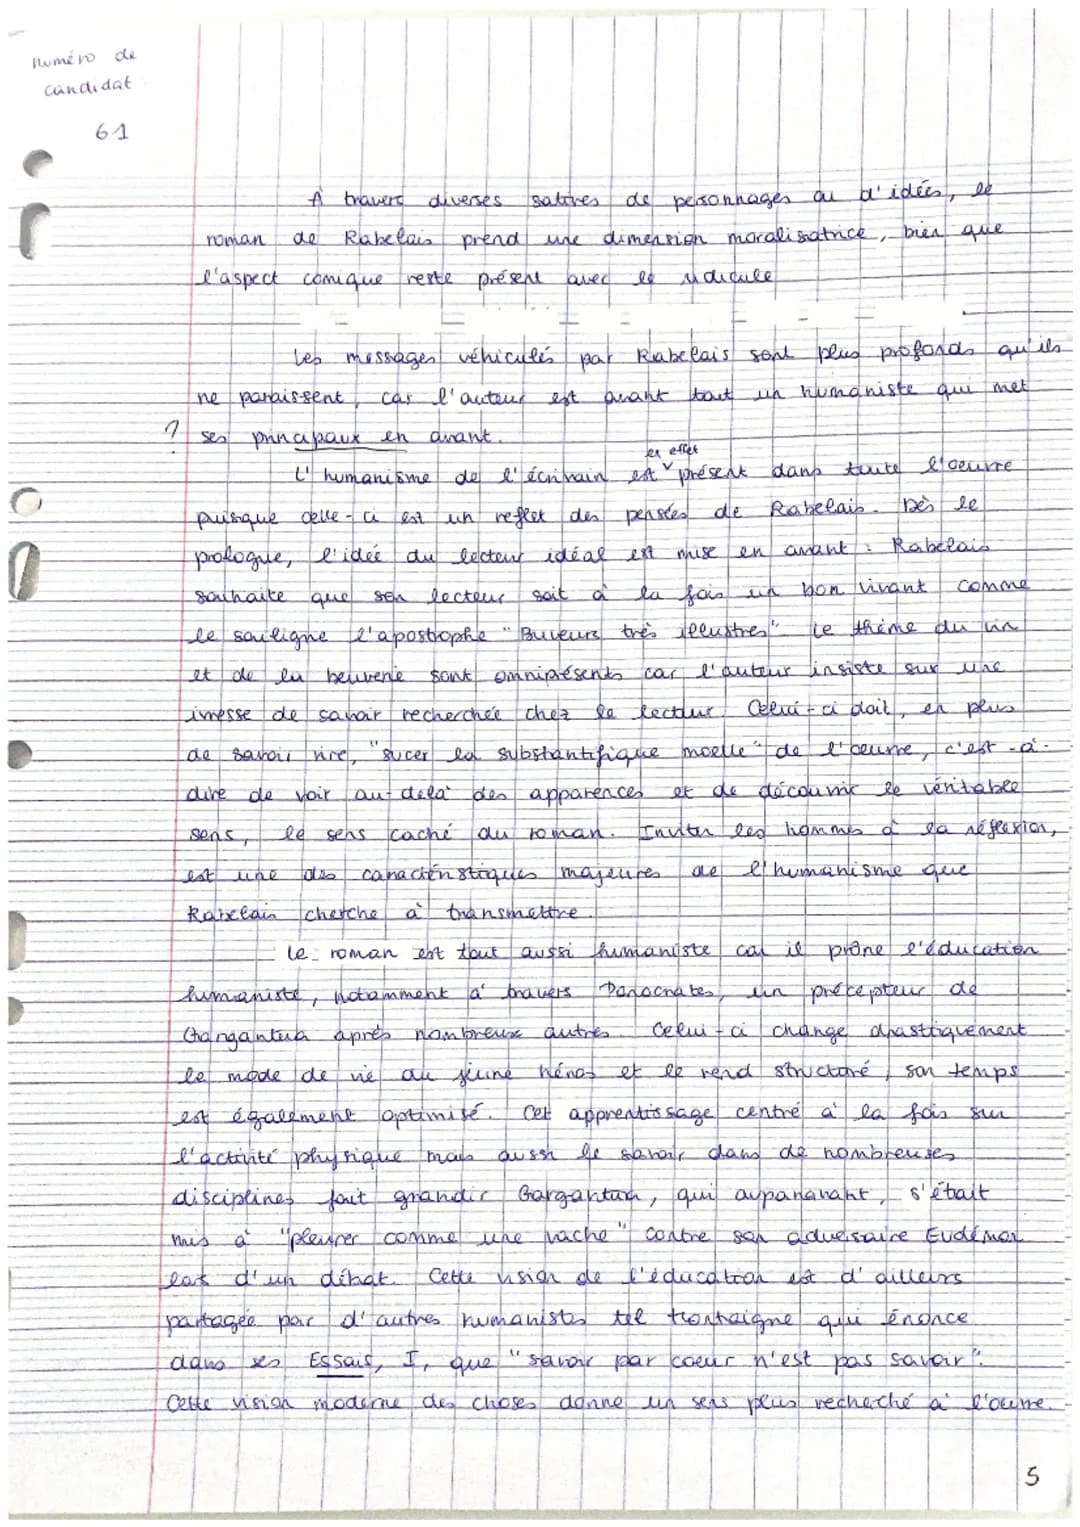 numéro de
candidat
61
À travers diverses satires de personnages ou d'idées, le
roman de Rabelais prend une dimension moralisatrice, bien que
l'aspect comique reste présent avec le ridicule
Les messages véhiculés par Rabelais sont plus profonds qu'ils
ne paraissent, car l'auteur est avant tout un humaniste qui met
? ses principaux en avant.
en effet
L'humanisme de l'écrivain est présent dans toute l'oeuvre
puisque celle-ci est un reflet des pensées de Rabelais. Dès le
prologue, l'idée du lecteur idéal est mise en avant : Rabelais
souhaite que son lecteur soit à la fois un bon vivant comme
le souligne l'apostrophe "Buveurs très illustres". Le thème du vin
et de la beuverie sont omniprésents car l'auteur insiste sur une
ivresse de savoir recherchée chez le lecteur. Celui-ci doit, en plus
de savoir rire, "sucer la substantifique moelle" de l'oeuvre, c'est-à-
dire de voir au-delà des apparences et de découvrir le véritable
sens, le sens caché du roman. Inviter les hommes à la réflexion,
est une des caractéristiques majeures de l'humanisme que
Rabelais cherche à transmettre.
Le roman est tout aussi humaniste car il prône l'éducation
humaniste, notamment à travers Ponocrates, un précepteur de
Gargantua après nombreux autres. Celui-ci change drastiquement
le mode de vie du jeune héros et le rend structuré, son temps
est également optimisé. Cet apprentissage centré à la fois sur
l'activité physique mais aussi le savoir dans de nombreuses
disciplines fait grandir Gargantua, qui auparavant, s'était
mis à "pleurer comme une vache" contre son adversaire Eudémon
lors d'un débat. Cette vision de l'éducation est d'ailleurs
partagée par d'autres humanistes tel Montaigne qui énonce
dans ses Essais, I, que "savoir par coeur n'est pas savoir".
Cette vision moderne des choses donne un sens plus recherché à l'oeuvre.
5